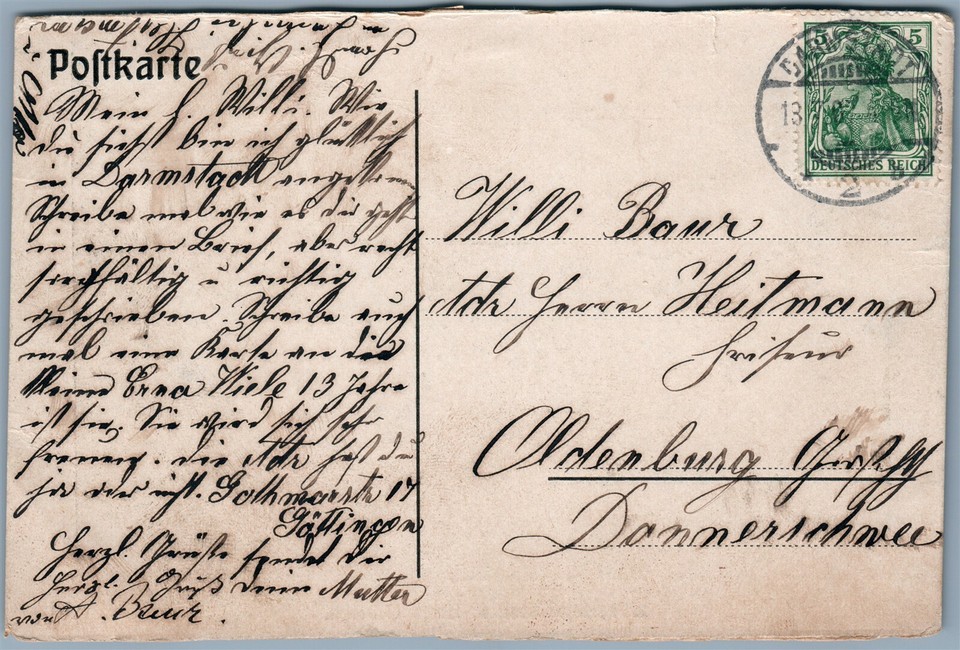 Postkarte
Mein l. Willi. Wie
du siehst bin ich glücklich
in Darmstadt angekommen
Schreibe mal wie es dir geht
in einem Brief, aber recht
sorgfältig u richtig
geschrieben. Schreibe auch
mal eine Karte an die
kleine Erna Wiele 13 Jahre
ist sie. Sie wird sich sehr
freuen. die Adr hast du
ja oder nicht. Gothmarstr 17
Göttingen
Herzl. Grüße sendet dir
Herzl. Gruß deine Mutter
von A. Baur.
5 5
DEUTSCHES REICH
Willi Baur
Adr Herrn Heitmann
Friseur
Oldenburg
Donnerschwee